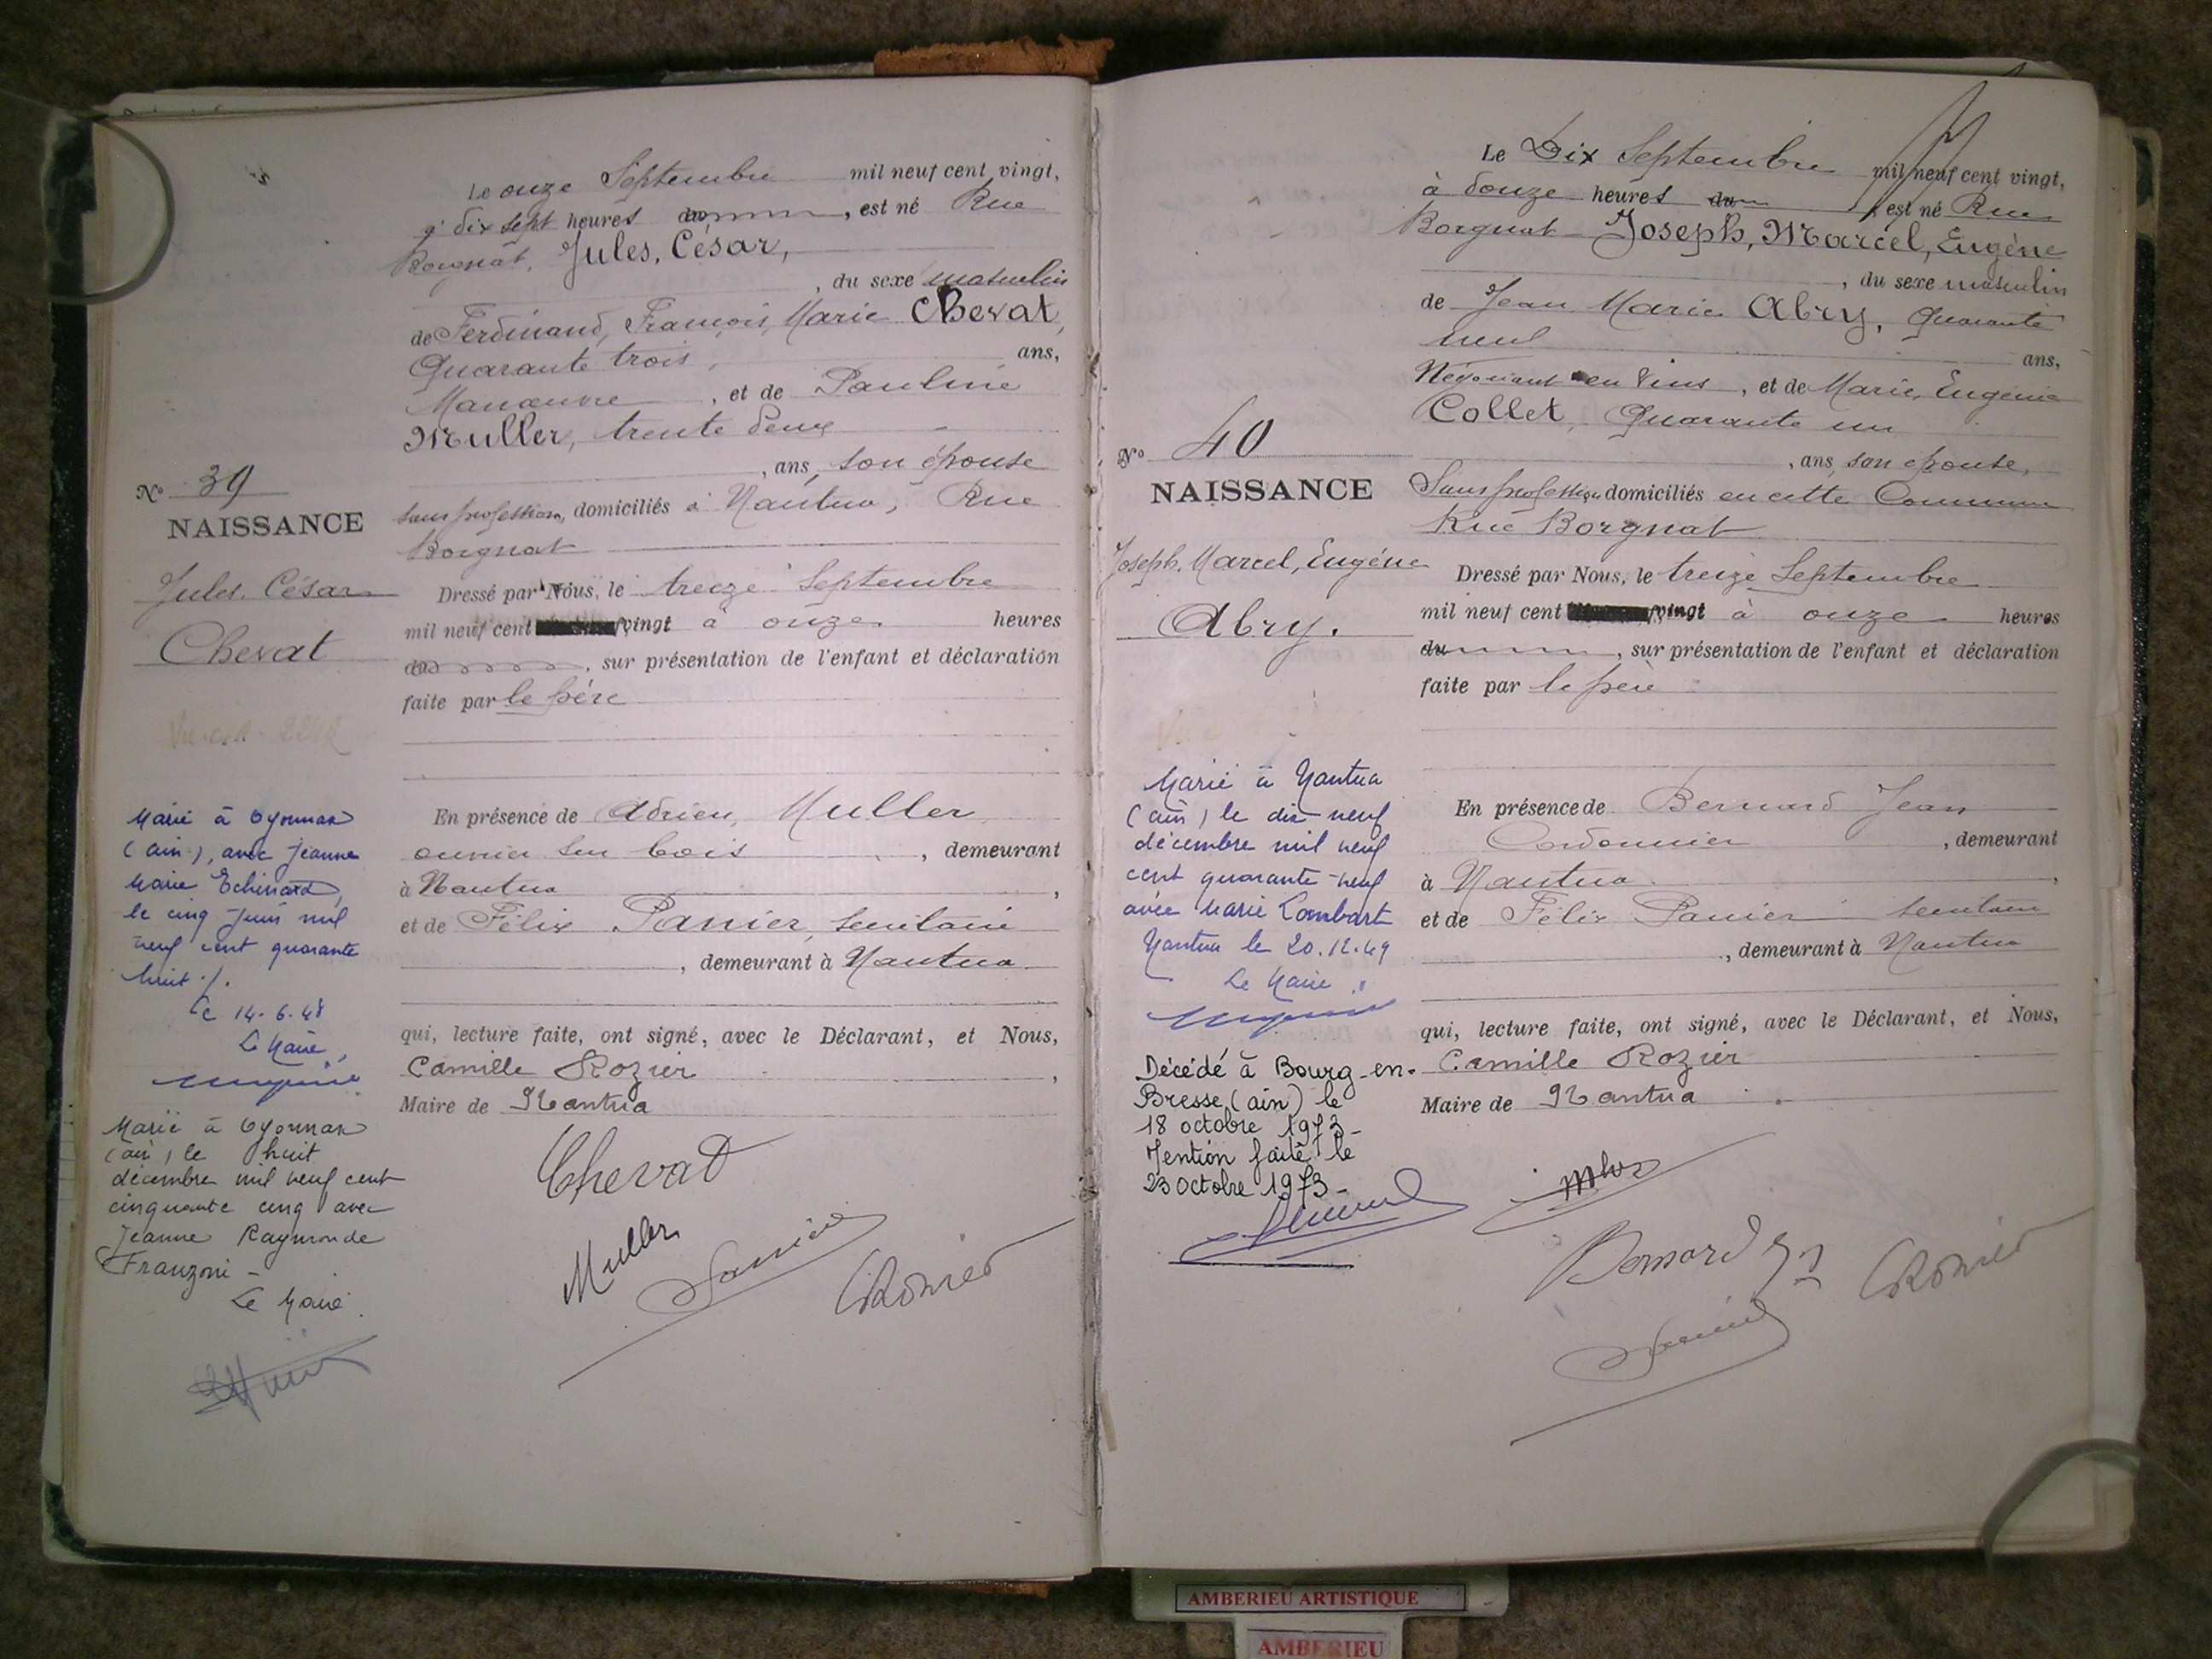 Le onze Septembre mil neuf cent vingt,
à dix sept heures du, est né Rue
Borgnat, Jules, César,
, du sexe masculin
de Ferdinand, François, Marie Chevat,
Quarante trois, ans,
Manœuvre, et de Pauline
Muller, trente deux
, ans, son épouse
sans profession, domiciliés à Nantua, Rue
Borgnat
Nº 39
NAISSANCE
Jules, César
Chevat
Dressé par Nous, le treize Septembre
mil neuf cent vingt à onze heures
du, sur présentation de l'enfant et déclaration
faite par le père
En présence de Adrien, Muller
ouvrier sur bois, demeurant
à Nantua,
et de Félix Panier, secrétaire
, demeurant à Nantua
qui, lecture faite, ont signé, avec le Déclarant, et Nous,
Camille Rozier,
Maire de Nantua
Marié à Oyonnax
(ain), avec Jeanne
Marie Echinard,
le cinq Juin mil
neuf cent quarante
huit ./.
Le 14-6-48
Le Maire,
Marié à Oyonnax
(ain) le huit
décembre mil neuf cent
cinquante cinq avec
Jeanne Raymonde
Franzoni -
Le Maire
Chevat
Muller
Panier
CRozier
Le Dix Septembre mil neuf cent vingt,
à douze heures du, est né Rue
Borgnat Joseph, Marcel, Eugène
, du sexe masculin
de Jean Marie Abry, Quarante
neuf ans,
Négociant en Vins, et de Marie, Eugénie
Collet, Quarante un
, ans, son épouse,
Sans profession domiciliés en cette Commune
Rue Borgnat
Nº 40
NAISSANCE
Joseph, Marcel, Eugène
Abry.
Dressé par Nous, le treize Septembre
mil neuf cent vingt à onze heures
du, sur présentation de l'enfant et déclaration
faite par le père
En présence de Bernard Jean
Cordonnier, demeurant
à Nantua,
et de Félix Panier secrétaire
, demeurant à Nantua
qui, lecture faite, ont signé, avec le Déclarant, et Nous,
Camille Rozier
Maire de Nantua
Marié à Nantua
(ain) le dix neuf
décembre mil neuf
cent quarante-neuf
avec Marie Lombart
Nantua le 20.12.49
Le Maire
Décédé à Bourg-en-
Bresse (ain) le
18 octobre 1973-
Mention faite le
23 octobre 1973-
Bernard
Panier
CRozier
AMBERIEU ARTISTIQUE
AMBERIEU